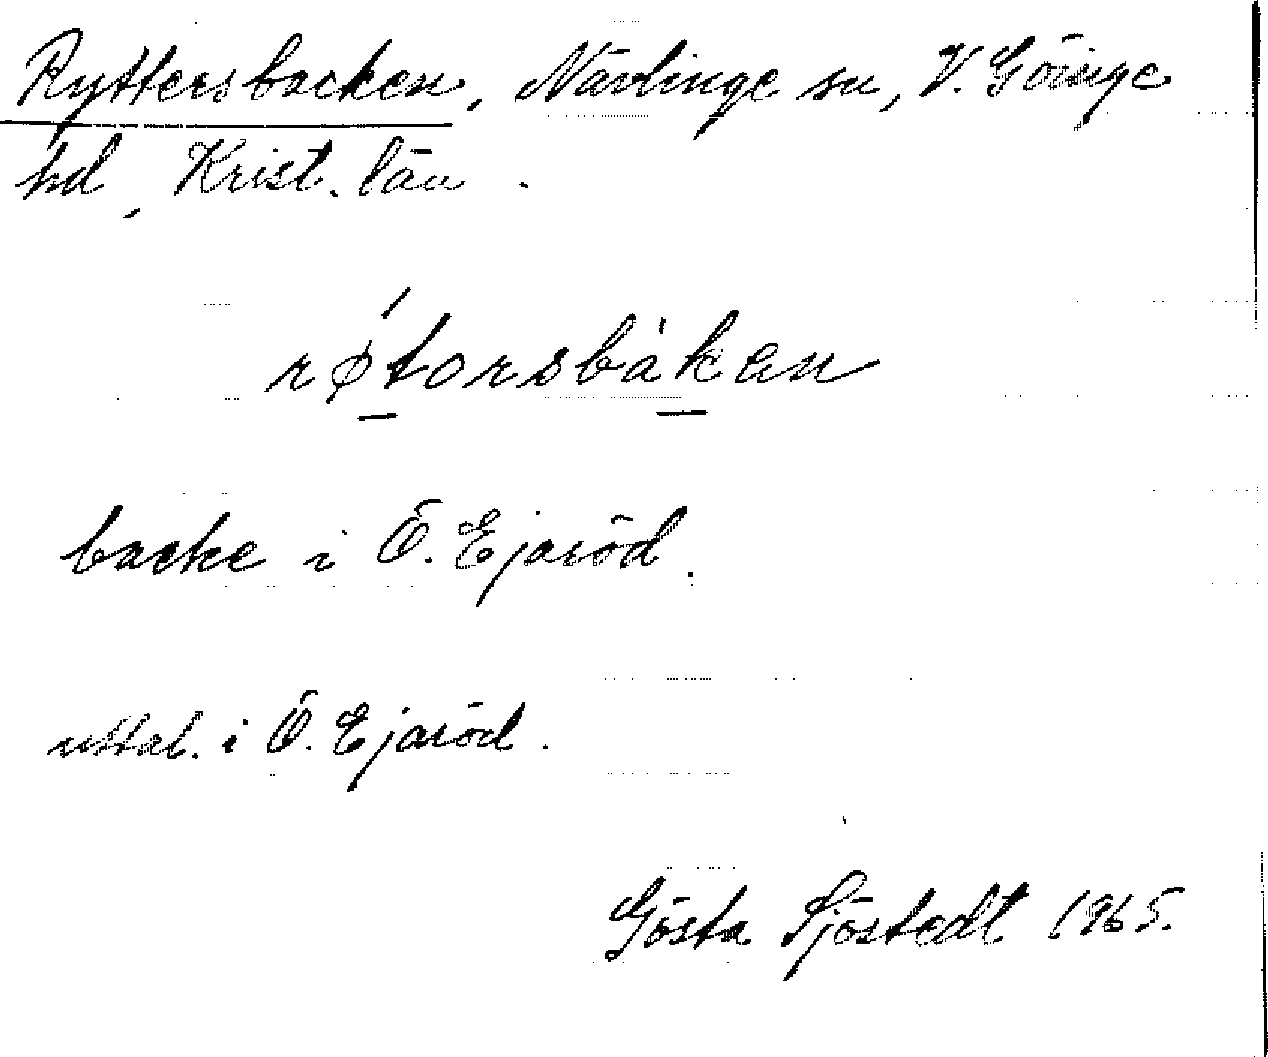 Ryttersbacken, Nävlinge sn, V. Göinge
hd, Krist. län.
røtorsbakan
backe i Ö. Ejaröd.
uttal. i Ö. Ejaröd.
Gösta Sjöstedt 1965.